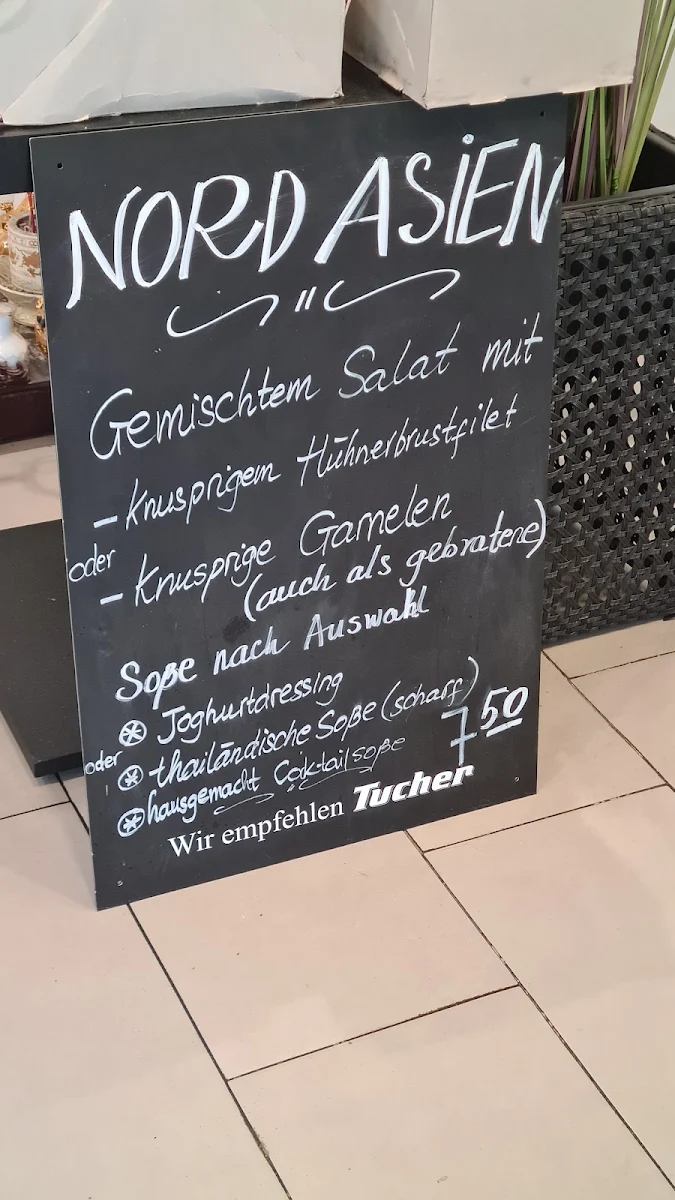 NORD ASIEN
Gemischtem Salat mit
- Knusprigem Hühnerbrustfilet
oder
- Knusprige Garnelen
(auch als gebratene)
Soße nach Auswahl
Joghurtdressing
oder
thailändische Soße (scharf)
hausgemacht Cocktailsoße
7 50
Wir empfehlen Tucher